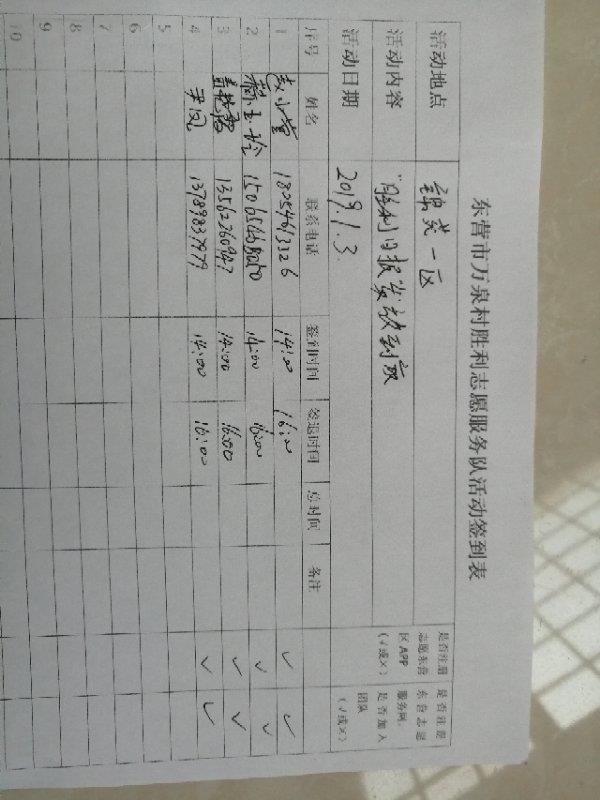 东营市万泉村胜利志愿服务队活动签到表
活动地点 锦苑一区
活动内容 "胜利日报发放到家
活动日期 2019.1.3
是否注册志愿东营区APP(√或×)
是否注册东营志愿服务网,是否加入团队(√或×)
序号 姓名 联系电话 签到时间 签退时间 总时间 备注
1 18254613326 14:00 16:00 √ √
2 14:00 16:00 √ √
3 13562260947 14:00 16:00 √ √
4 尹凤 13789837979 14:00 16:00 √ √
5
6
7
8
9
10